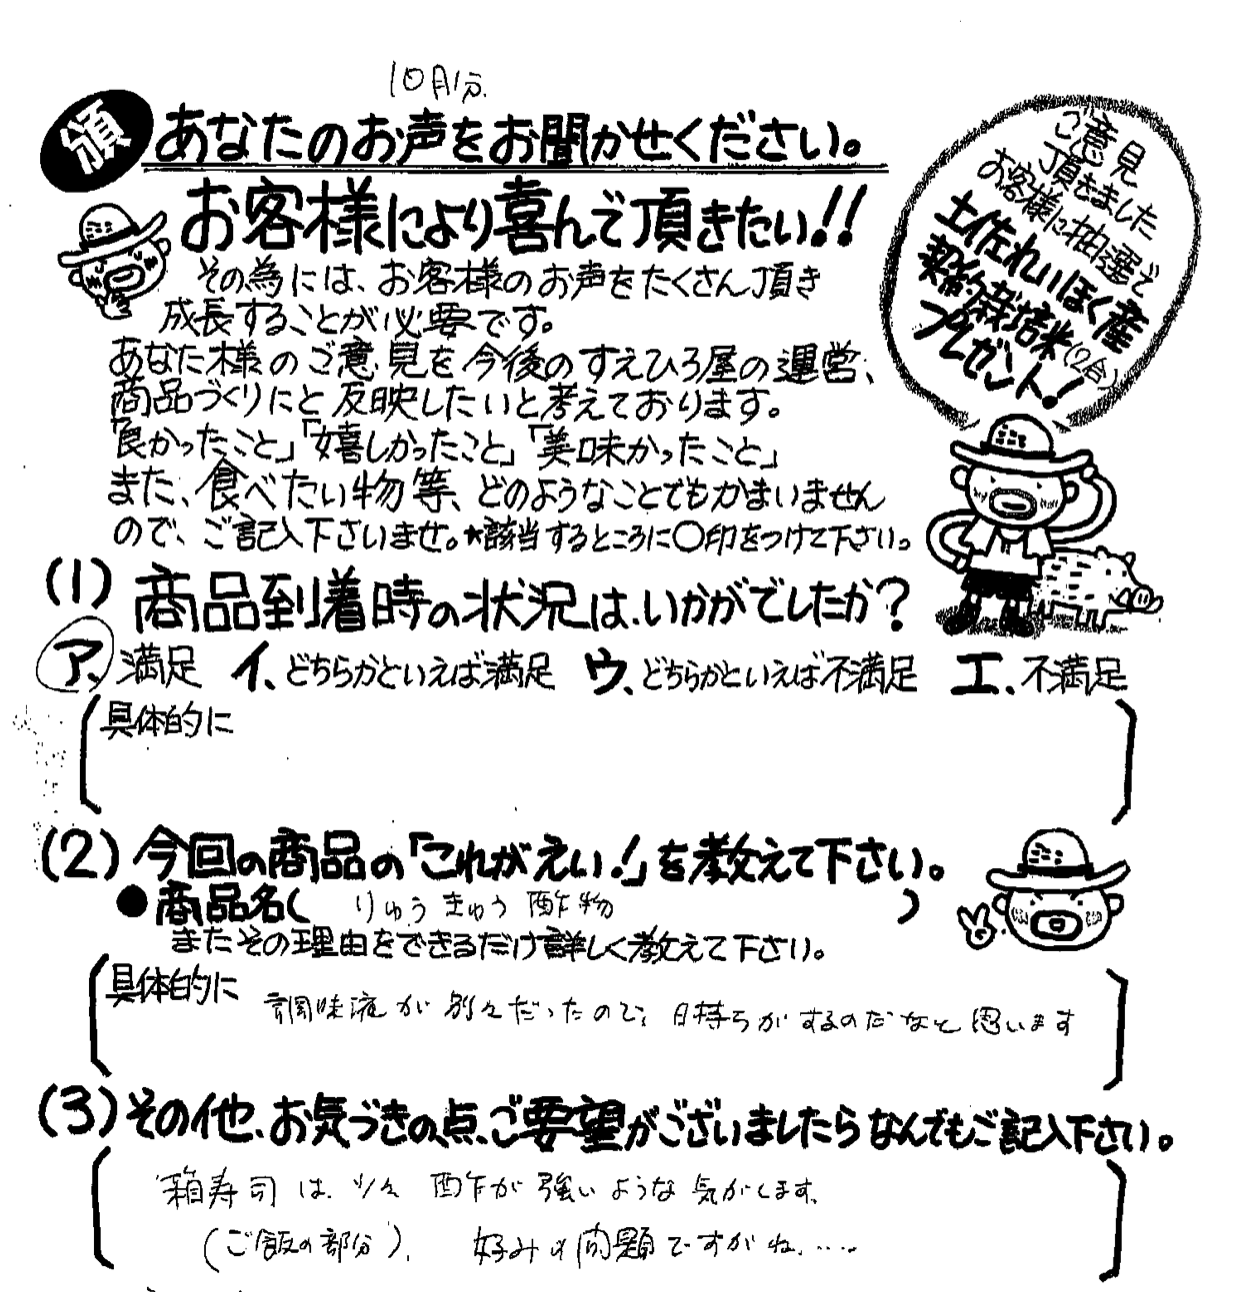 10月分
頒 あなたのお声をお聞かせください。
お客様により喜んで頂きたい!!
その為には、お客様のお声をたくさん頂き
成長することが必要です。
あなた様のご意見を今後のすえひろ屋の運営、
商品づくりにと反映したいと考えております。
「良かったこと」「嬉しかったこと」「美味かったこと」
また、食べたい物等、どのようなことでもかまいません
ので、ご記入下さいませ。★該当するところに○印をつけて下さい。
ご意見
頂きました
お客様に抽選で
土佐れいほく産
契約栽培米(2合)
プレゼント!
(1) 商品到着時の状況は、いかがでしたか?
ア、満足 イ、どちらかといえば満足 ウ、どちらかといえば不満足 エ、不満足
具体的に
(2) 今回の商品の「これがえい!」を教えて下さい。
●商品名( りゅうきゅう酢物 )
またその理由をできるだけ詳しく教えて下さい。
具体的に 調味液が別々だったので、日持ちがするのだなと思います
(3) その他、お気づきの点、ご要望がございましたらなんでもご記入下さい。
箱寿司は、少々酢が強いような気がします。
(ご飯の部分)、 好みの問題ですがね、....